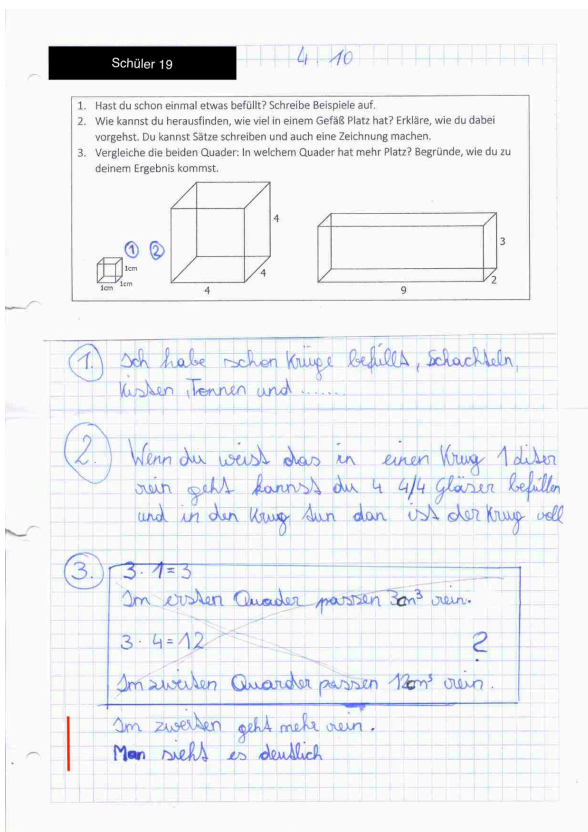 Schüler 19
4. 10
1. Hast du schon einmal etwas befüllt? Schreibe Beispiele auf.
2. Wie kannst du herausfinden, wie viel in einem Gefäß Platz hat? Erkläre, wie du dabei
vorgehst. Du kannst Sätze schreiben und auch eine Zeichnung machen.
3. Vergleiche die beiden Quader: In welchem Quader hat mehr Platz? Begründe, wie du zu
deinem Ergebnis kommst.
1 2
1cm
1cm
1cm
4
4
4
3
2
9
1. Ich habe schon Krüge befüllt, Schachteln,
Kisten, Tonnen und .......
2. Wenn du weist das in einen Krug 1 Liter
rein geht kannst du 4 4/4 Gläser befüllen
und in den Krug tun dan ist der Krug voll
3. 3 · 1 = 3
Im ersten Quader passen 3cm³ rein.
3 · 4 = 12
?
Im zweiten Quarder passen 12cm³ rein.
Im zweiten geht mehr rein.
Man sieht es deutlich